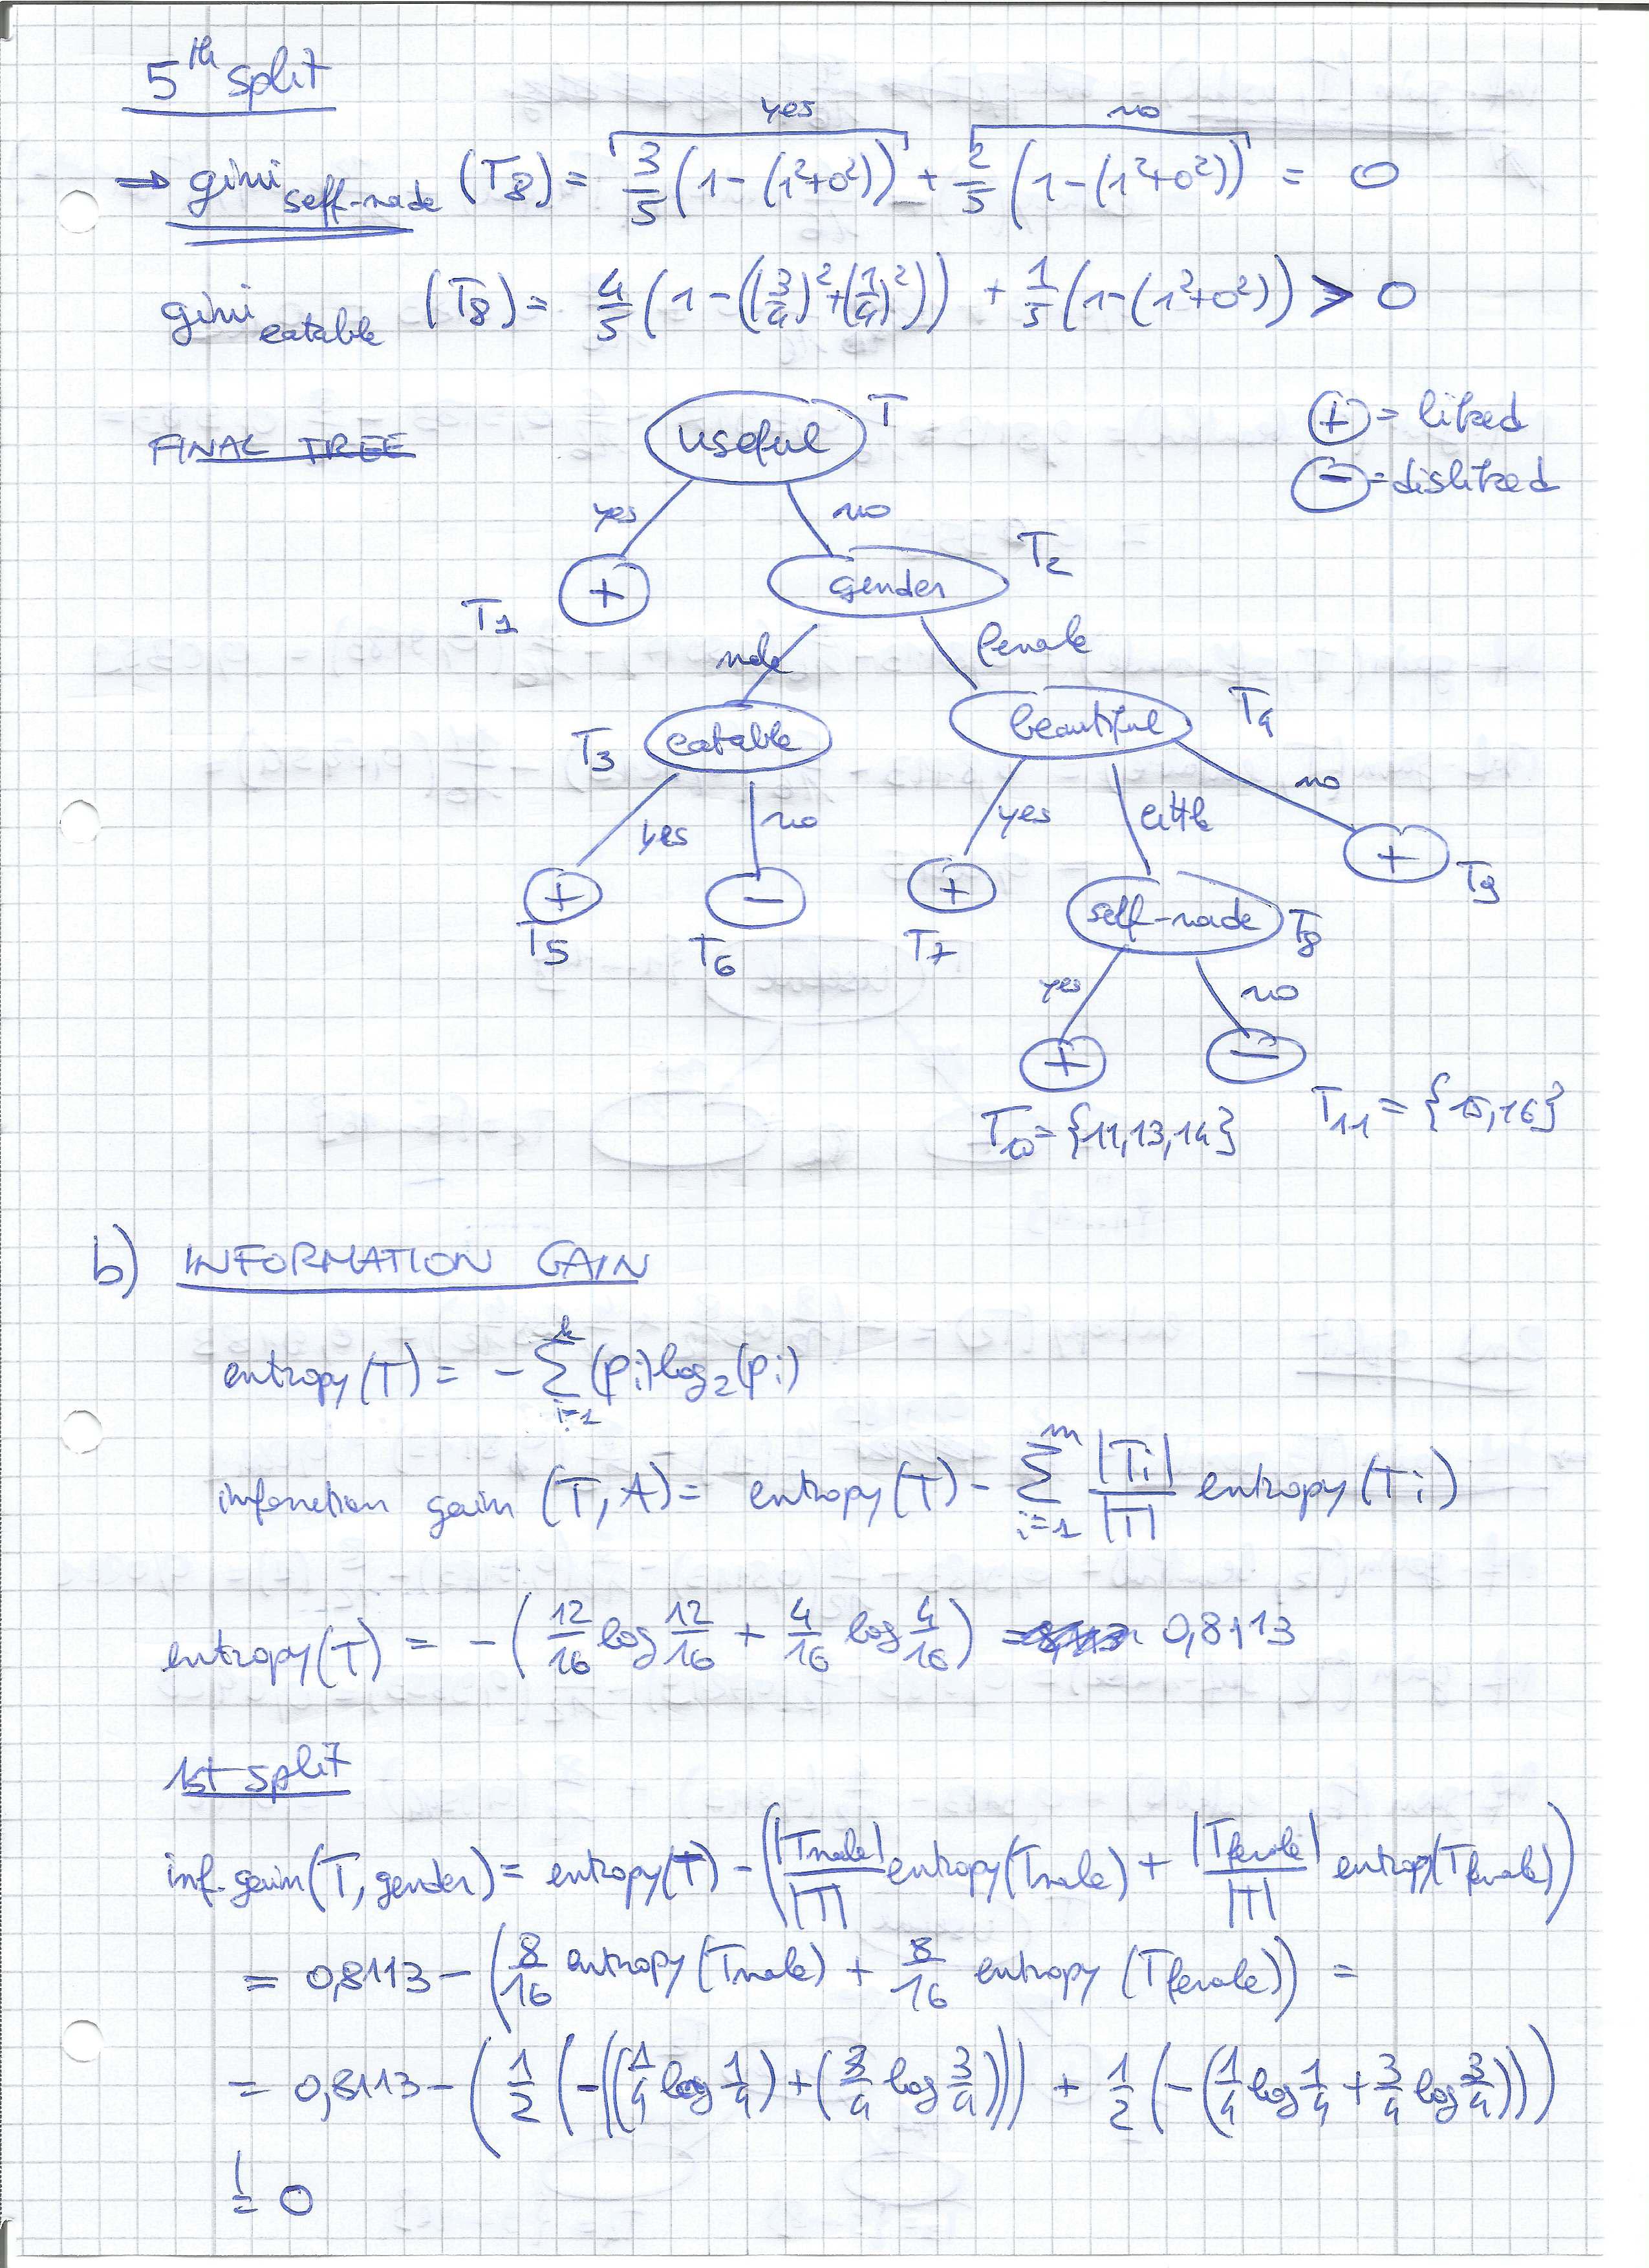 5th split
yes no
⇒ gini self-made (T8) = 3/5 (1-(1²+0²)) + 2/5 (1-(1²+0²)) = 0
gini eatable (T8) = 4/5 (1-((3/4)²+(1/4)²)) + 1/5 (1-(1²+0²)) > 0
FINAL TREE
useful T
⊕ = liked
⊖ = disliked
yes no
T1 + gender T2
male female
T3 eatable beautiful T4
yes no yes little no
+ - + self-made T8 + T9
T5 T6 T7
yes no
+ -
T10 = {11,13,14} T11 = {15,16}
b) INFORMATION GAIN
entropy(T) = - Σ i=1 k (pi) log2(pi)
information gain (T, A) = entropy(T) - Σ i=1 m |Ti|/|T| entropy(Ti)
entropy(T) = - (12/16 log 12/16 + 4/16 log 4/16) = 0,8113
1st split
inf.gain(T, gender) = entropy(T) - (|Tmale|/|T| entropy(Tmale) + |Tfemale|/|T| entropy(Tfemale))
= 0,8113 - (8/16 entropy(Tmale) + 8/16 entropy (Tfemale)) =
= 0,8113 - (1/2 (-((1/4 log 1/4) + (3/4 log 3/4))) + 1/2 (-(1/4 log 1/4 + 3/4 log 3/4)))
!= 0